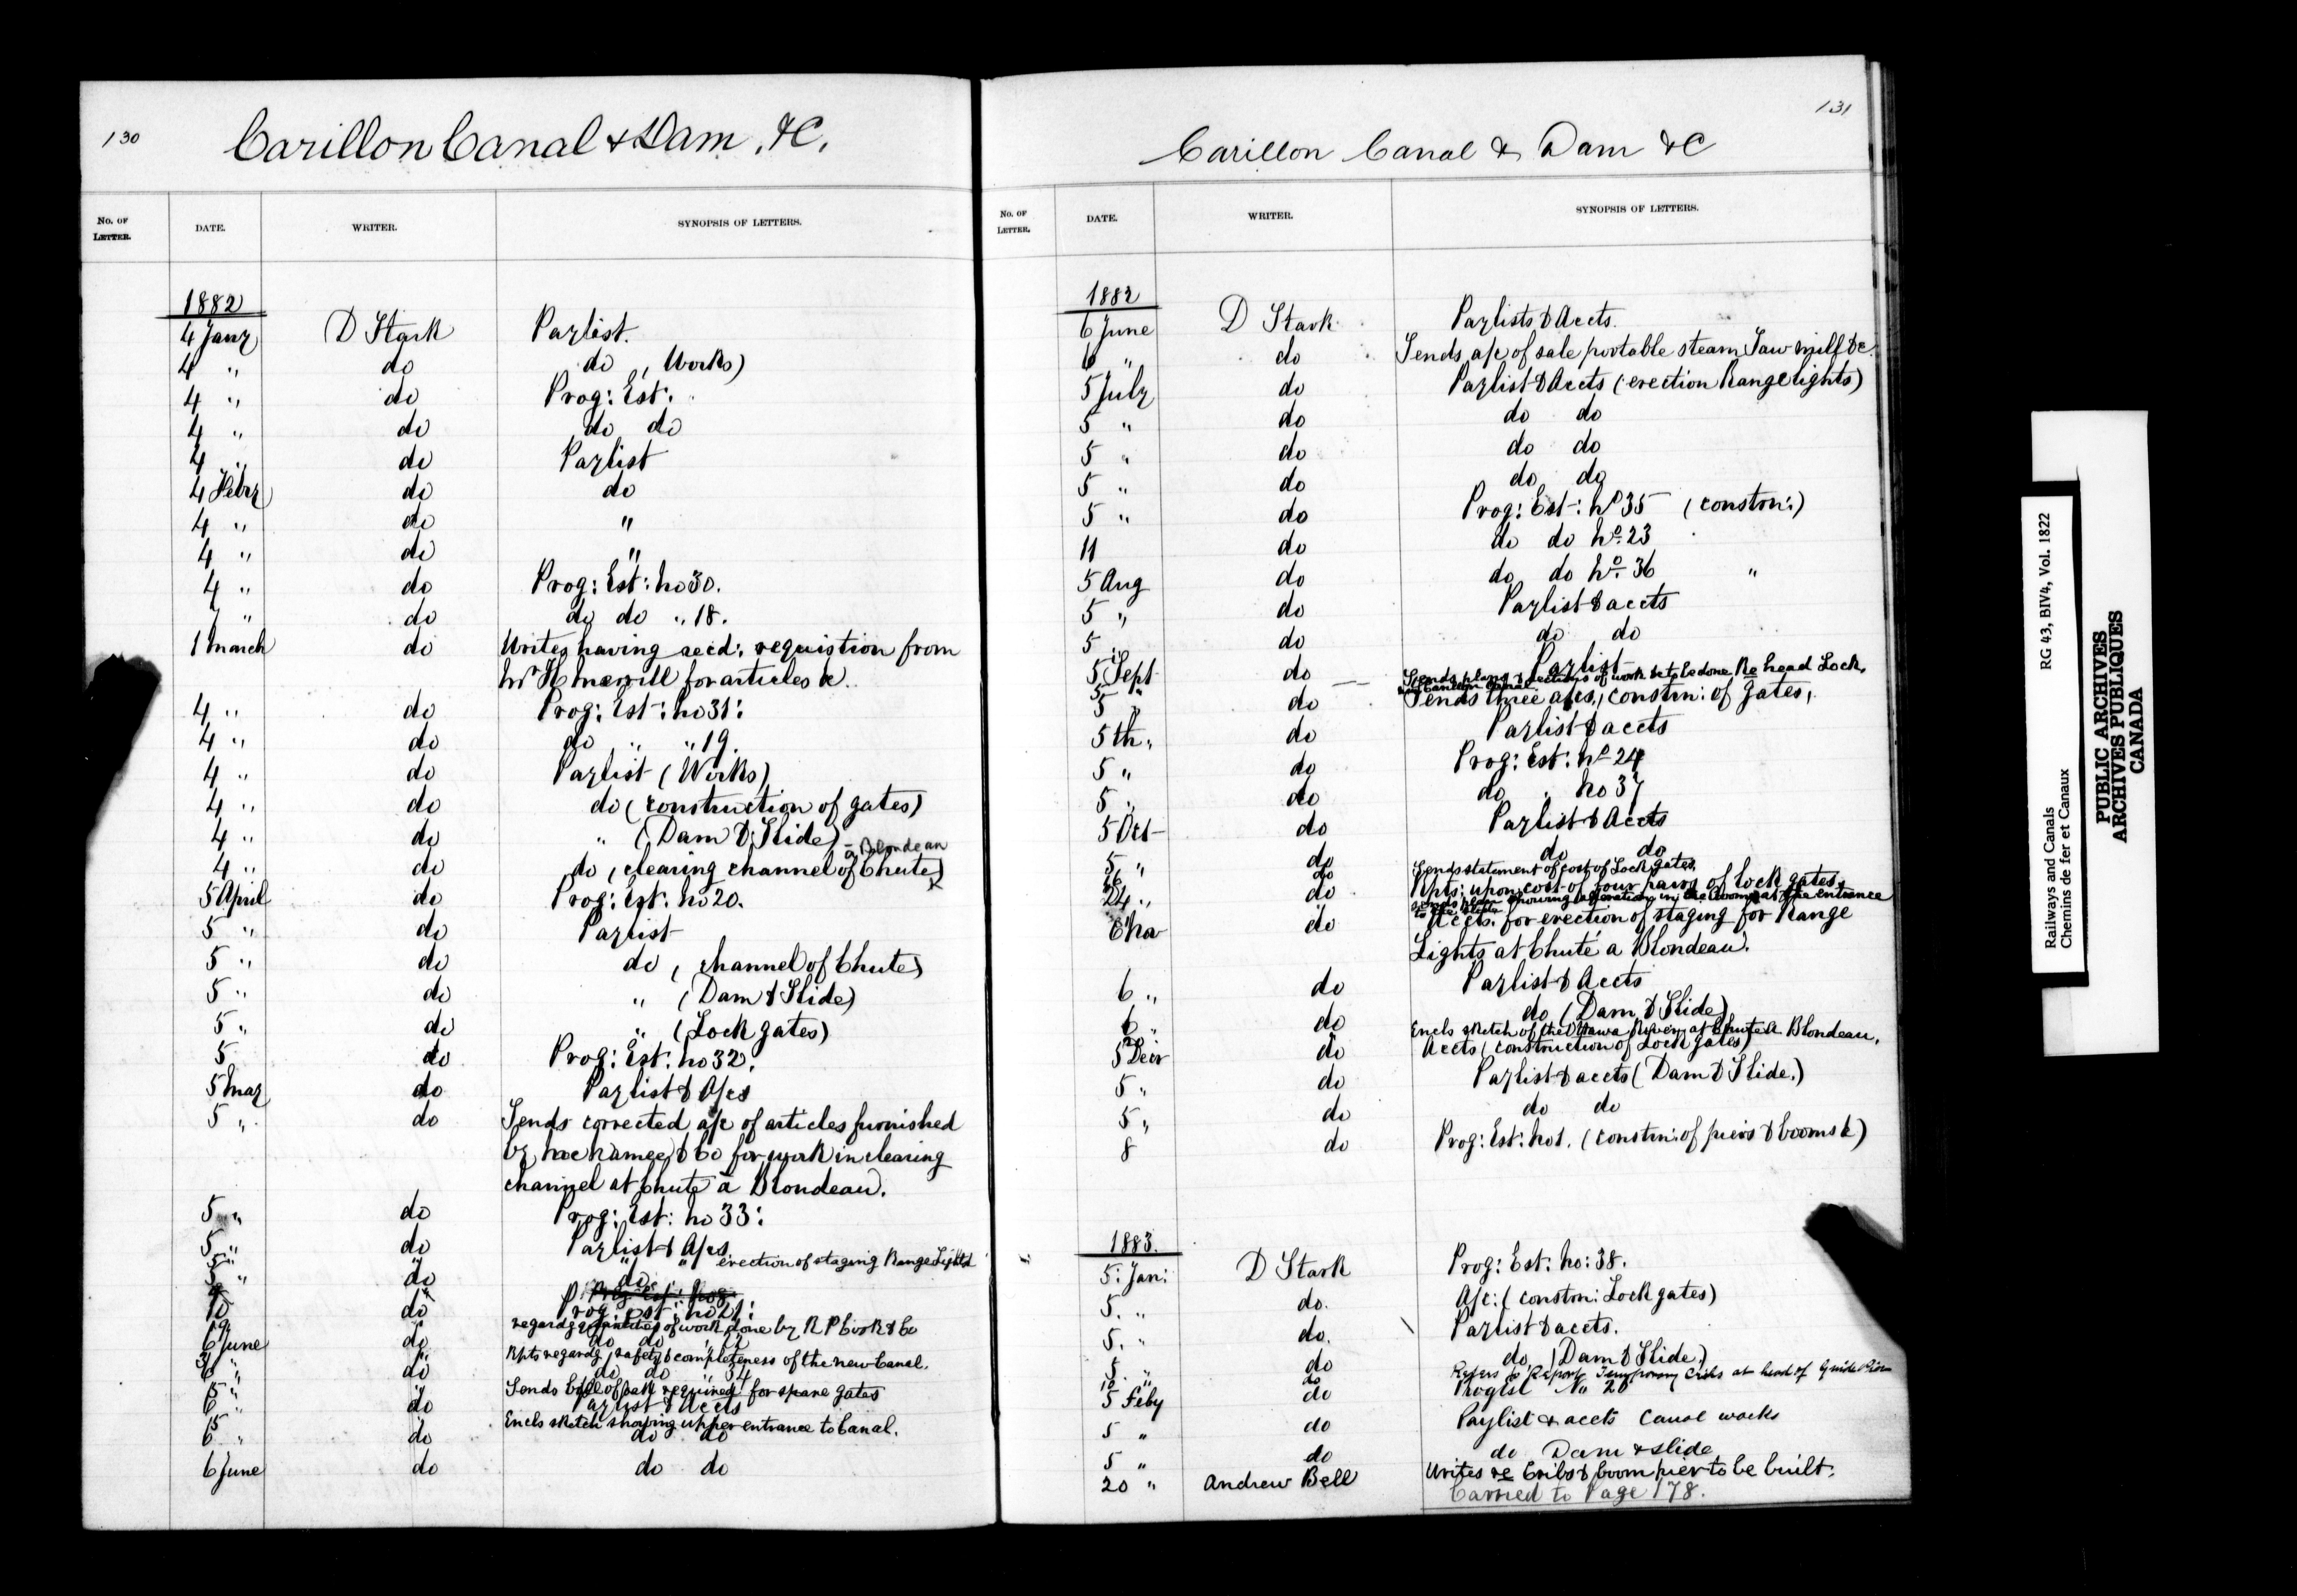 130
Carillon Canal & Dam, &C.
No. OF LETTER. DATE. WRITER. SYNOPSIS OF LETTERS.
1882
4 Jany D Stark Paylist.
4 " do do (Works)
4 " do Prog: Est:
4 " do do do
4 " do Paylist
4 Feby do do
4 " do "
4 " do "
4 " do Prog: Est: No 30.
7 " do do do " 18.
1 March do Writes having recd: requistion from
Mr H Merrill for articles &c.
4 " do Prog: Est: No 31:
4 " do do " " 19.
4 " do Paylist (Works)
4 " do do (construction of gates)
4 " do " (Dam & Slide)
4 " do do (clearing channel of Chute) a Blondeau
5 April do Prog: Est: No 20.
5 " do Paylist
5 " do do (channel of Chute)
5 " do " (Dam & Slide)
5 " do " (Lock gates)
5 do Prog: Est: No 32.
5 May do Paylist & A/cs
5 " do Sends corrected a/c of articles furnished
by MacNamee & Co for work in clearing
channel at Chute à Blondeau.
5 " do Prog: Est: No 33:
5 " do Paylist & A/cs
5 " " " " erection of staging Range Lights
5 " do do
10 do Prog: Est: No 21:
regardg quantities of work done by R P Cook & Co
6 June do do do " 22
Rpts regardg safety & completeness of the new Canal.
6 " do do do " 34
Sends bill of oak required for spare gates
6 " do Paylist & Accts
15 Encls sketch showing upper entrance to Canal.
6 " do do do
6 June do do do
131
Carillon Canal & Dam &C
No. OF LETTER. DATE. WRITER. SYNOPSIS OF LETTERS.
1882
6 June D Stark Paylists & Accts.
6 " do Sends a/c of sale portable steam Saw mill &c.
5 July do Paylist & Accts (erection Range lights)
5 " do do do
5 " do do do
5 " do do do
5 " do Prog: Est: No 35 (constrn:)
11 do do do No. 23
5 Aug do do do No. 36 "
5 " do Paylist & accts
5 " do do do
5 Sept do Paylist
Sends plans & sections of work to be done Re head Lock,
Carillon Canal
5 " do Sends three a/cs, (constrn: of gates,
5th " do Paylist & accts
5 " do Prog: Est: No 24
5 " do do " No 37
5 Oct do Paylist & Accts
5 " do do do
do Sends statement of cost of Lock gates,
24 " do Rpts: upon cost of four pairs of lock gates,
Sends plan showing alteration in the Boom at the entrance
to the slide
6 Nov do Accts. for erection of staging for Range
Lights at Chute a Blondeau.
6 " do Paylist & Accts
6 " do do (Dam & Slide)
Encls sketch of the Ottawa River at Chute a Blondeau.
5 Decr do Accts (construction of Lock gates)
5 " do Paylist & accts (Dam & Slide.)
5 " do do do
8 do Prog: Est: No 1. (constrn: of piers & booms &c)
1883.
5: Jan: D Stark Prog: Est: No: 38.
5. " do. A/c: (constrn: Lock gates)
5. " do. Paylist & accts.
5. " do do (Dam & Slide)
10 do Refers to Report Temporary Cribs at head of Guide Pier
5 Feby do Progest No 26
5 " do Paylist & accts Canal works
5 " do do Dam & slide
20 " Andrew Bell Writes re Cribs & boom pier to be built.
Carried to Page 178.
Railways and Canals RG 43, BIV4, Vol. 1822
Chemins de fer et Canaux
PUBLIC ARCHIVES
ARCHIVES PUBLIQUES
CANADA